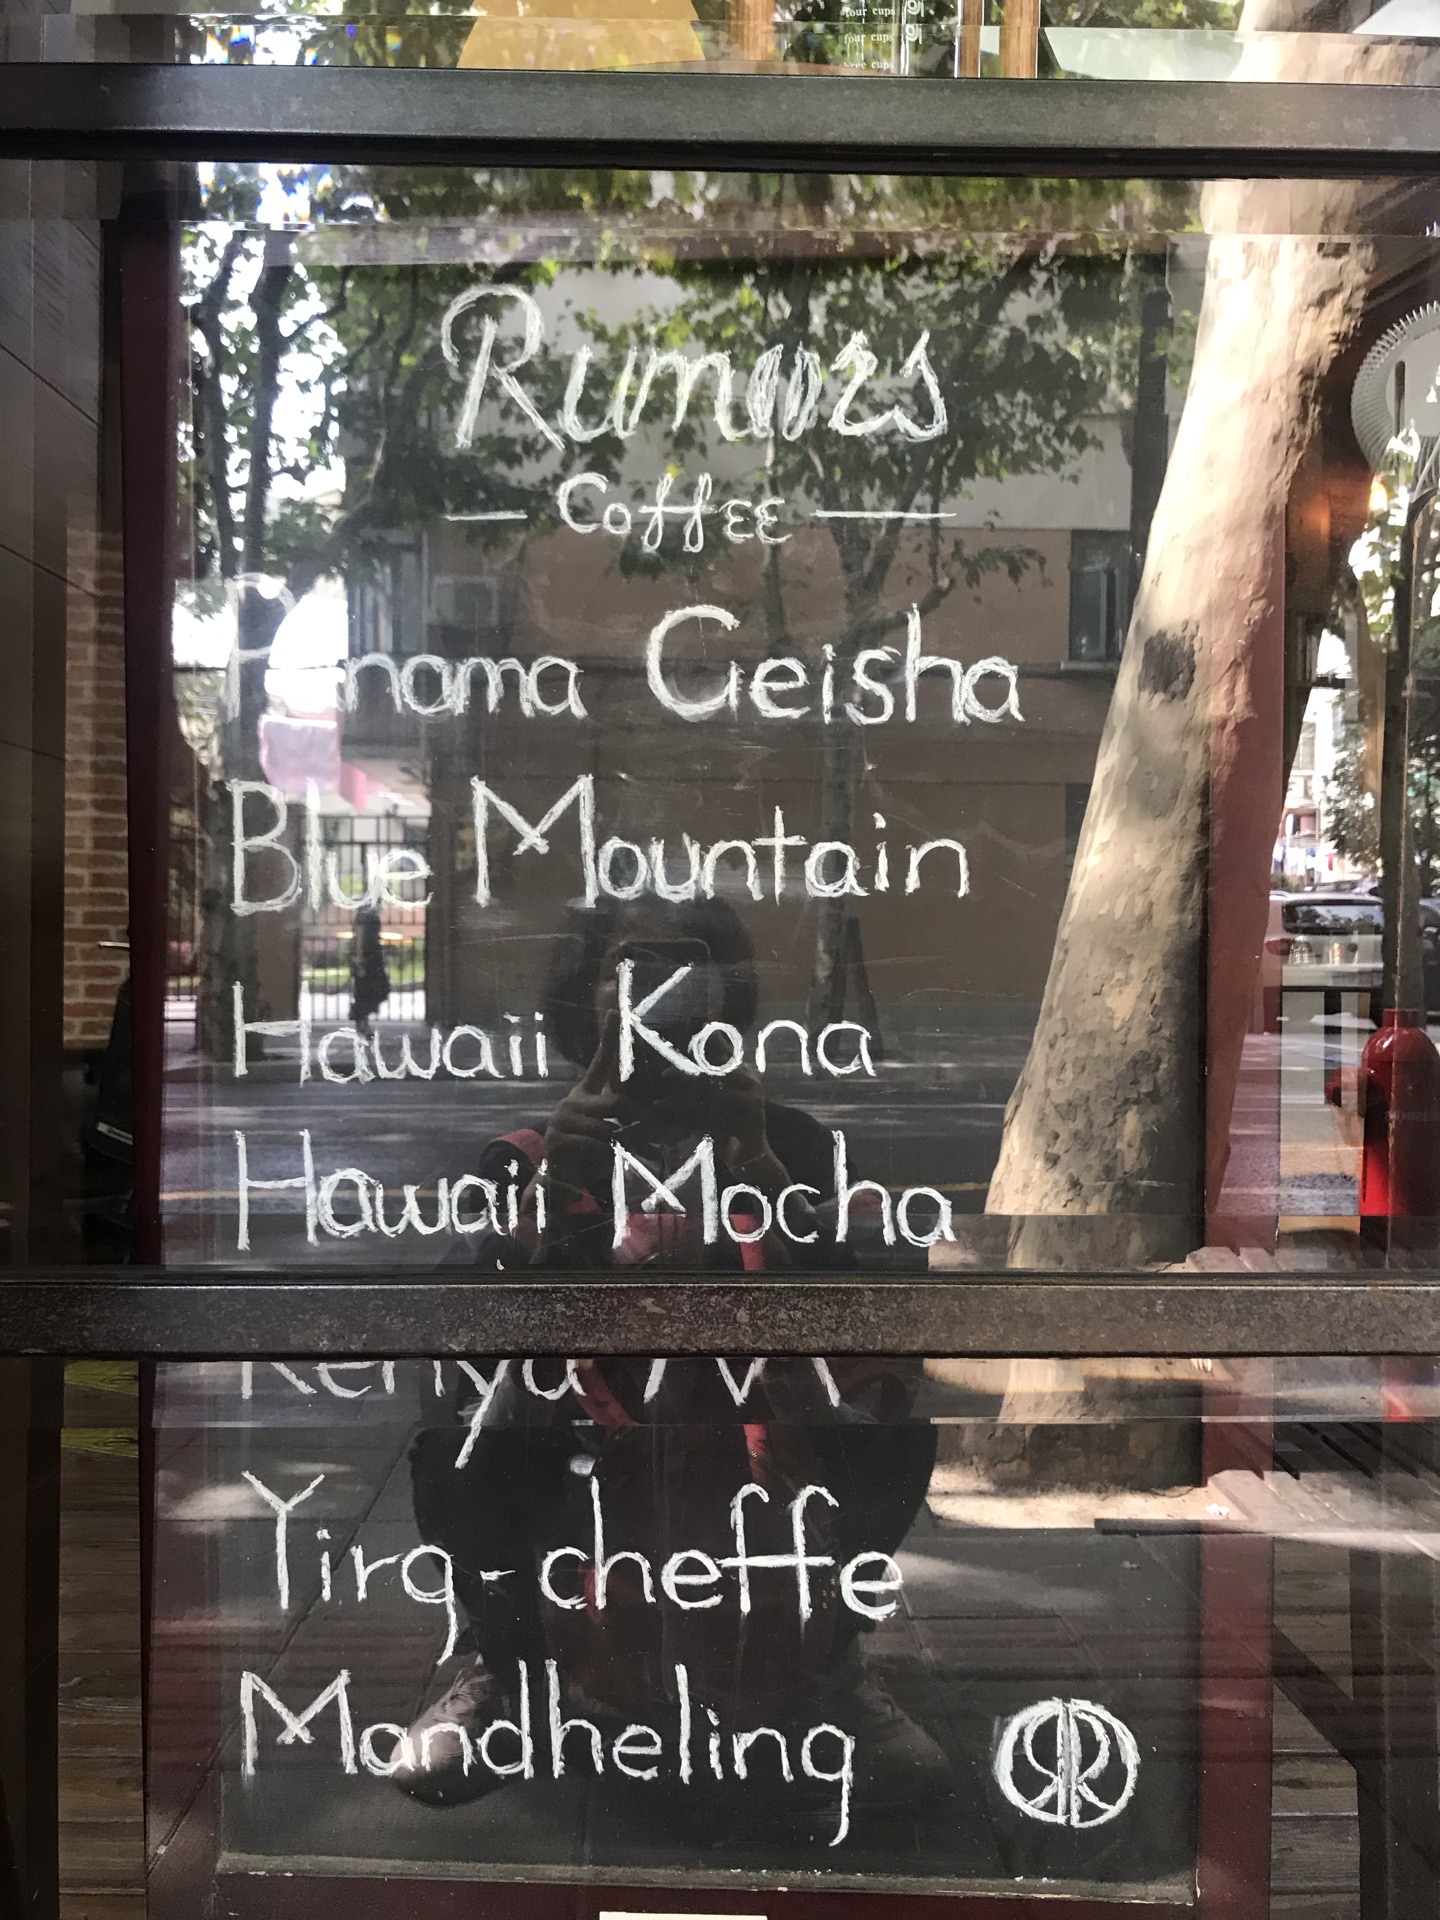 four cups
four cups
three cups
Rumors
Coffee
Panama Geisha
Blue Mountain
Hawaii Kona
Hawaii Mocha
Kenya AA
Yirg-cheffe
Mandheling